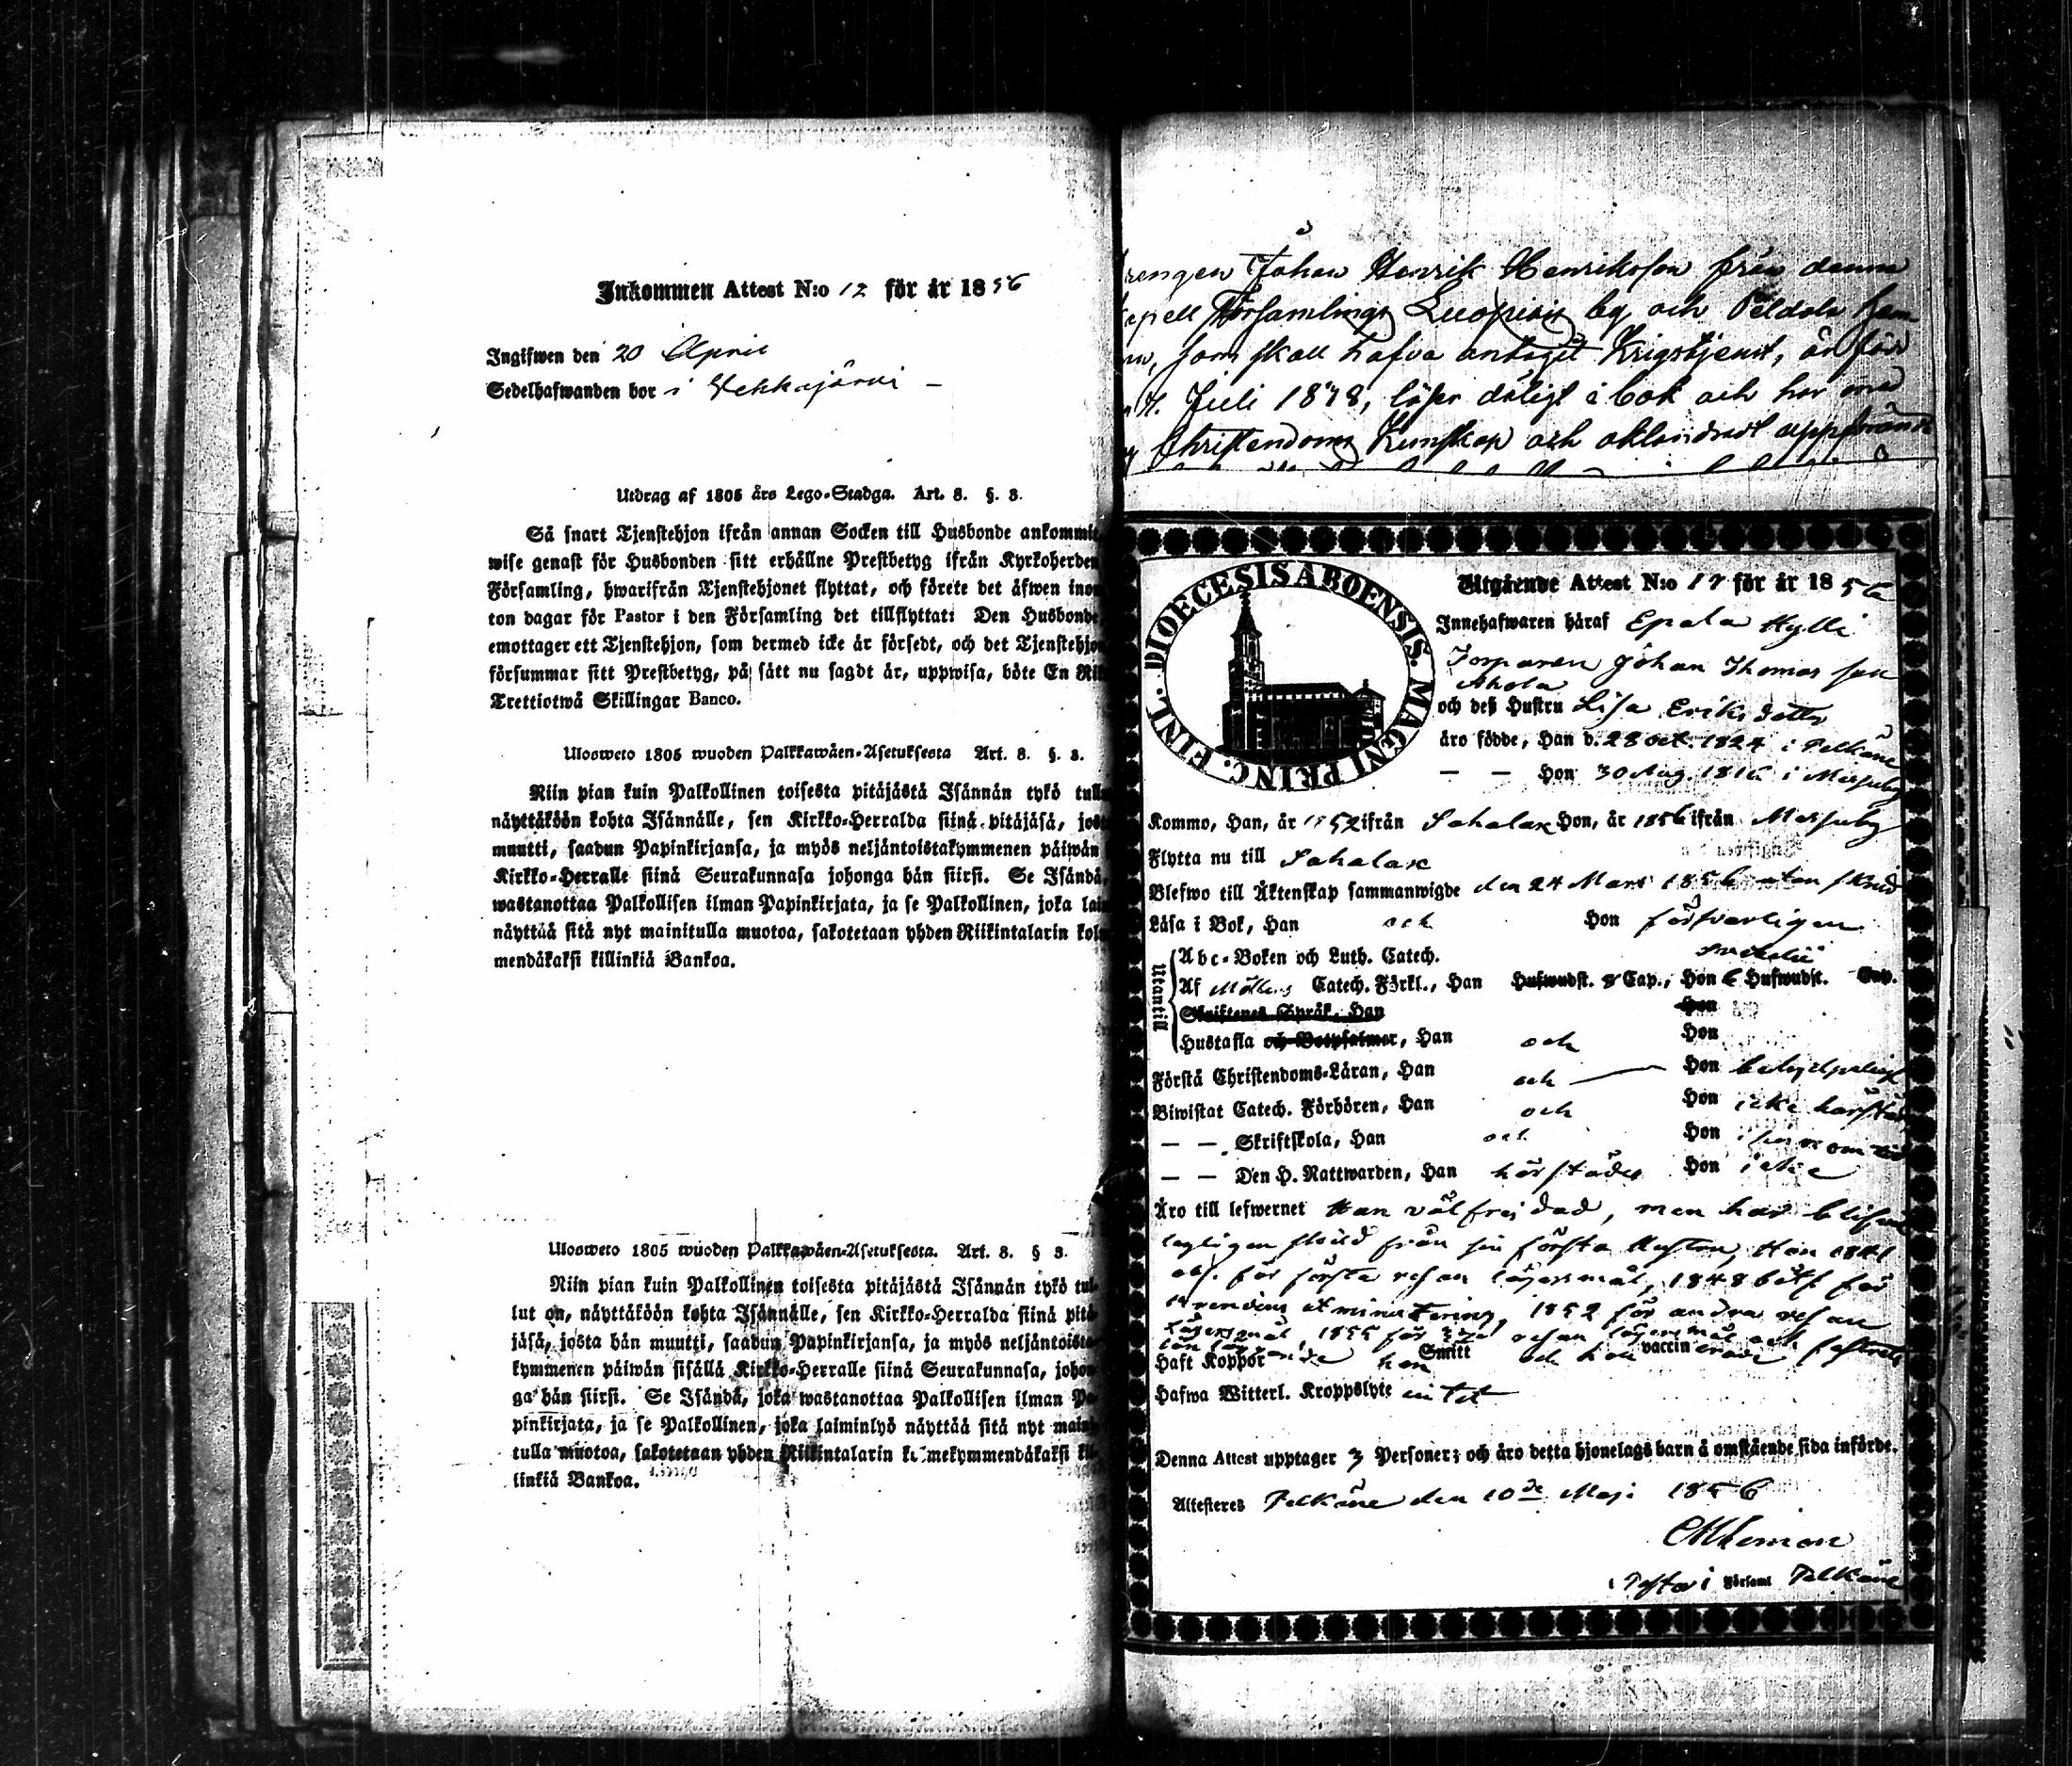 Inkommen Attest N:o 12 för år 1856
Ingifwen den 20 April
Sedelhafwanden bor i
Utdrag af 1805 års Lego-Stadga. Art. 8. §. 3.
Så snart Tjenstehjon ifrån annan Socken till Husbonde ankommit
wise genast för Husbonden sitt erhållne Prestbetyg ifrån Kyrkoherden
Församling, hwarifrån Tjenstehjonet flyttat, och förete det äfwen inom
ton dagar för Pastor i den Församling det tillflyttat: Den Husbonde
emottager ett Tjenstehjon, som dermed icke är försedt, och det Tjenstehjon
försummar sitt Prestbetyg, på sätt nu sagdt är, uppwisa, böte En Rik
Trettiotwå Skillingar Banco.
Ulosweto 1805 wuoden Palkkawäen-Asetuksesta Art. 8. §. 3.
Niin pian kuin Palkollinen toisesta pitäjästä Isännän tykö tullu
näyttäköön kohta Isännälle, sen Kirkko-Herralda siinä pitäjäsä, josta
muutti, saadun Papinkirjansa, ja myös neljäntoistakymmenen päiwän
Kirkko-Herralle siinä Seurakunnasa johonga hän siirsi. Se Isändä,
wastanottaa Palkollisen ilman Papinkirjata, ja se Palkollinen, joka lai
näyttää sitä nyt mainitulla muotoa, sakotetaan yhden Riikintalarin kolm
mendäkaksi killinkiä Bankoa.
Ulosweto 1805 wuoden Palkkawäen-Asetuksesta. Art. 8. § 3.
Niin pian kuin Palkollinen toisesta pitäjästä Isännän tykö tul-
lut on, näyttäköön kohta Isännälle, sen Kirkko-Herralda siinä pitä
jäsä, josta hän muutti, saadun Papinkirjansa, ja myös neljäntoista
kymmenen päiwän sisällä Kirkko-Herralle siinä Seurakunnasa, johon
ga hän siirsi. Se Isändä, joka wastanottaa Palkollisen ilman Pa
pinkirjata, ja se Palkollinen, joka laiminlyö näyttää sitä nyt maini
tulla muotoa, sakotetaan yhden Riikintalarin kolmekymmendäkaksi kil
linkiä Bankoa.
rengen Johan Henrik Henriksson från denna
apell Församlings Luopiois by och Peldola hem
som skall hafva antagit Krigstjenst, är född
Juli 1838, läser dåligt i bok och har
Christendoms Kunskap och oklandradt uppförande
DIOECESIS ABOENSIS. MAGNI PRINC. FINL.
Utgående Attest N:o 17 för år 1856
Innehafwaren häraf Epala Kylli
Torparen Johan Thomasson
Ahola
och deß Hustru Lisa Eriksdotter
äro födde, Han d. 28 Oct. 1824 i Pelkäne
— — Hon 30 Aug. 1816 i Messuby
Kommo, Han, år 1852 ifrån Sahalax Hon, år 1856 ifrån Messuby
Flytta nu till Sahalax
Blefwo till Äktenskap sammanwigde den 24 Mars 1856 utan skrud
Läsa i Bok, Han och Hon försvarligen
Utantill
Abc-Boken och Luth. Catech.
Af Möllers Catech. Förkl., Han Hufwudst. 8 Cap., Hon 6 Hufwudst. Cap.
Skriftenes Språk, Han Hon
Hustafla och Botpsalmer, Han och Hon
Förstå Christendoms-Läran, Han och Hon behjelpligt
Biwistat Catech. Förhören, Han och Hon icke härstädes
— — Skriftskola, Han och Hon i sinom tid
— — Den H. Nattwarden, Han härstädes Hon icke
Äro till lefwernet Han välfrejdad, men har blifvit
lagligen skild från sin första Hustru, Hon 1841
abs. för första resan lägersmål, 1848 bött för
1852 för andra resan
lägersmål, 1855 för 3dje resan lägersmål och
Haft Koppor han Smitt och hon vaccinerade
Hafwa Witterl. Kroppslyte intet
Denna Attest upptager 3 Personer; och äro detta hjonelags barn å omstående sida införde.
Attesteres Pelkäne den 10de Maji 1856
Pastor i Församl Pelkäne